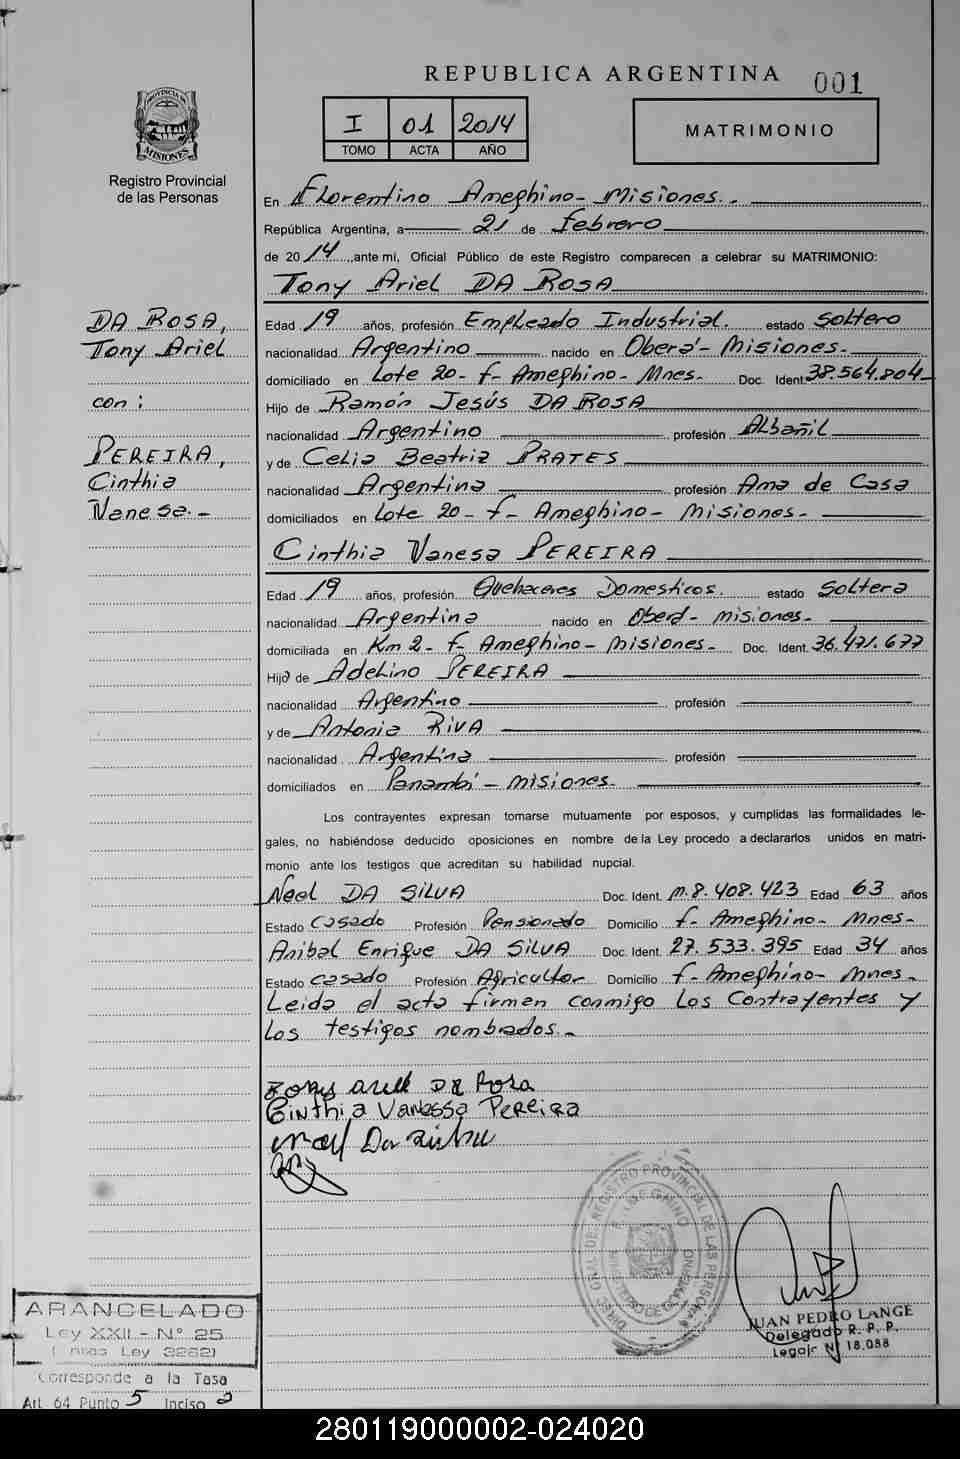 REPUBLICA ARGENTINA 001
I 01 2014
TOMO ACTA AÑO
MATRIMONIO
PROVINCIA DE
MISIONES
Registro Provincial
de las Personas
En Florentino Ameghino - Misiones. -
República Argentina, a 21 de febrero
de 2014, ante mi, Oficial Público de este Registro comparecen a celebrar su MATRIMONIO:
Tony Ariel DA ROSA
DA ROSA,
Tony Ariel
con:
PEREIRA,
Cinthia
Vanesa. -
Edad 19 años, profesión Empleado Industrial. estado Soltero
nacionalidad Argentino nacido en Oberá - Misiones. -
domiciliado en Lote 20 - f - Ameghino - Mnes. Doc. Ident. 38.564.804 -
Hijo de Ramón Jesús DA ROSA
nacionalidad Argentino profesión Albañil
y de Celia Beatriz PRATES
nacionalidad Argentina profesión Ama de Casa
domiciliados en Lote 20 - f - Ameghino - Misiones. -
Cinthia Vanesa PEREIRA
Edad 19 años, profesión Quehaceres Domesticos. estado Soltera
nacionalidad Argentina nacido en Oberá - Misiones. -
domiciliada en Km 2 - f. Ameghino - Misiones. - Doc. Ident. 36.471.677
Hija de Adelino PEREIRA
nacionalidad Argentino profesión
y de Antonia RIVA
nacionalidad Argentina profesión
domiciliados en Panambí - Misiones.
Los contrayentes expresan tomarse mutuamente por esposos, y cumplidas las formalidades le-
gales, no habiéndose deducido oposiciones en nombre de la Ley procedo a declararlos unidos en matri-
monio ante los testigos que acreditan su habilidad nupcial.
Noel DA SILVA Doc. Ident. M.8.408.423 Edad 63 años
Estado Casado Profesión Pensionado Domicilio f. Ameghino - Mnes -
Anibal Enrique DA SILVA Doc. Ident. 27.533.395 Edad 34 años
Estado casado Profesión Agricultor Domicilio f - Ameghino - Mnes -
Leida el acta firman conmigo los Contrayentes y
los testigos nombrados. -
Tony ariel DA Rosa
Cinthia Vanessa Pereira
Noel Da Silva
REGISTRO PROVINCIAL DE LAS PERSONAS
JUAN PEDRO LANGE
Delegado R. P. P.
Legajo Nº 18.088
ARANCELADO
Ley XXII - Nº 25
Ley 3262)
Corresponde a la Tasa
Art. 64 Punto 5 Inciso 2
280119000002-024020